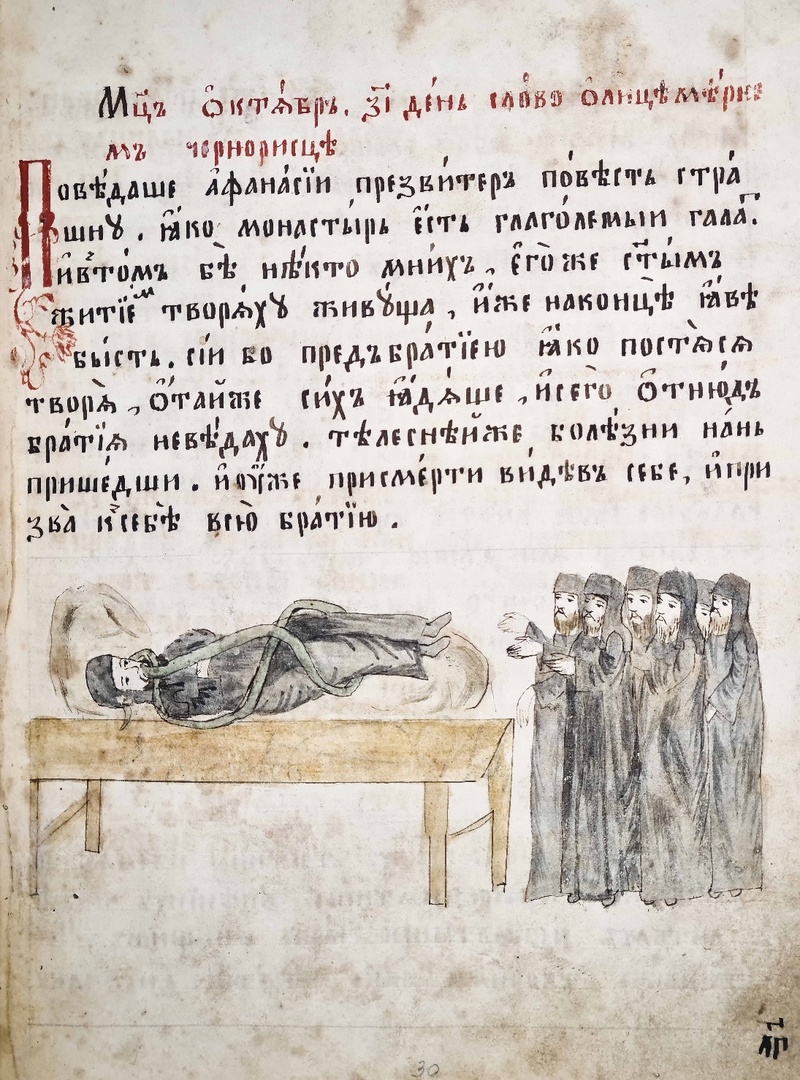 Мц҃ъ ѻктѧ́брѧ. з҃і де́нь сло́во ѻ҆лицѣмѣ́рне
мъ чернорисцѣ
Повѣ́даше а҆фана́сїи презви́теръ по́вѣсть стра́
шнꙋ. ꙗ҆́ко монасты́рь є҆́сть глаго́лемыи гала҃т.
И҆вто́мъ бѣ̀ нѣ́кто мни́хъ, є҆го̀ же ст҃ы́мъ
житїе́м творѧ́хꙋ живꙋ́ща, и҆́же наконцѣ̀ ꙗ҆́вѣ
бы́сть. сі́и бо предъ бра́тїею ꙗ҆́ко постѧ́сѧ
творѧ̀, ѻ҆тай же си́хъ ꙗ҆дѧ́ше, и҆сегѡ̀ ѻ҆тню́дъ
бра́тїѧ невѣ́дахꙋ. тѣле́снѣй же болѣ́зни на́нь
прише́дши. и҆ ᲂу҆же присме́рти ви́дѣвъ себе, и҆при
зва̀ к̾себѣ̀ всю̀ бра́тїю.
30